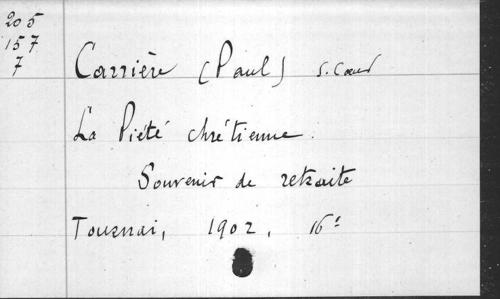 205
157
7
Carrière (Paul) S. Cœur
La Piété chrétienne.
Souvenir de retraite
Tournai, 1902, 16°